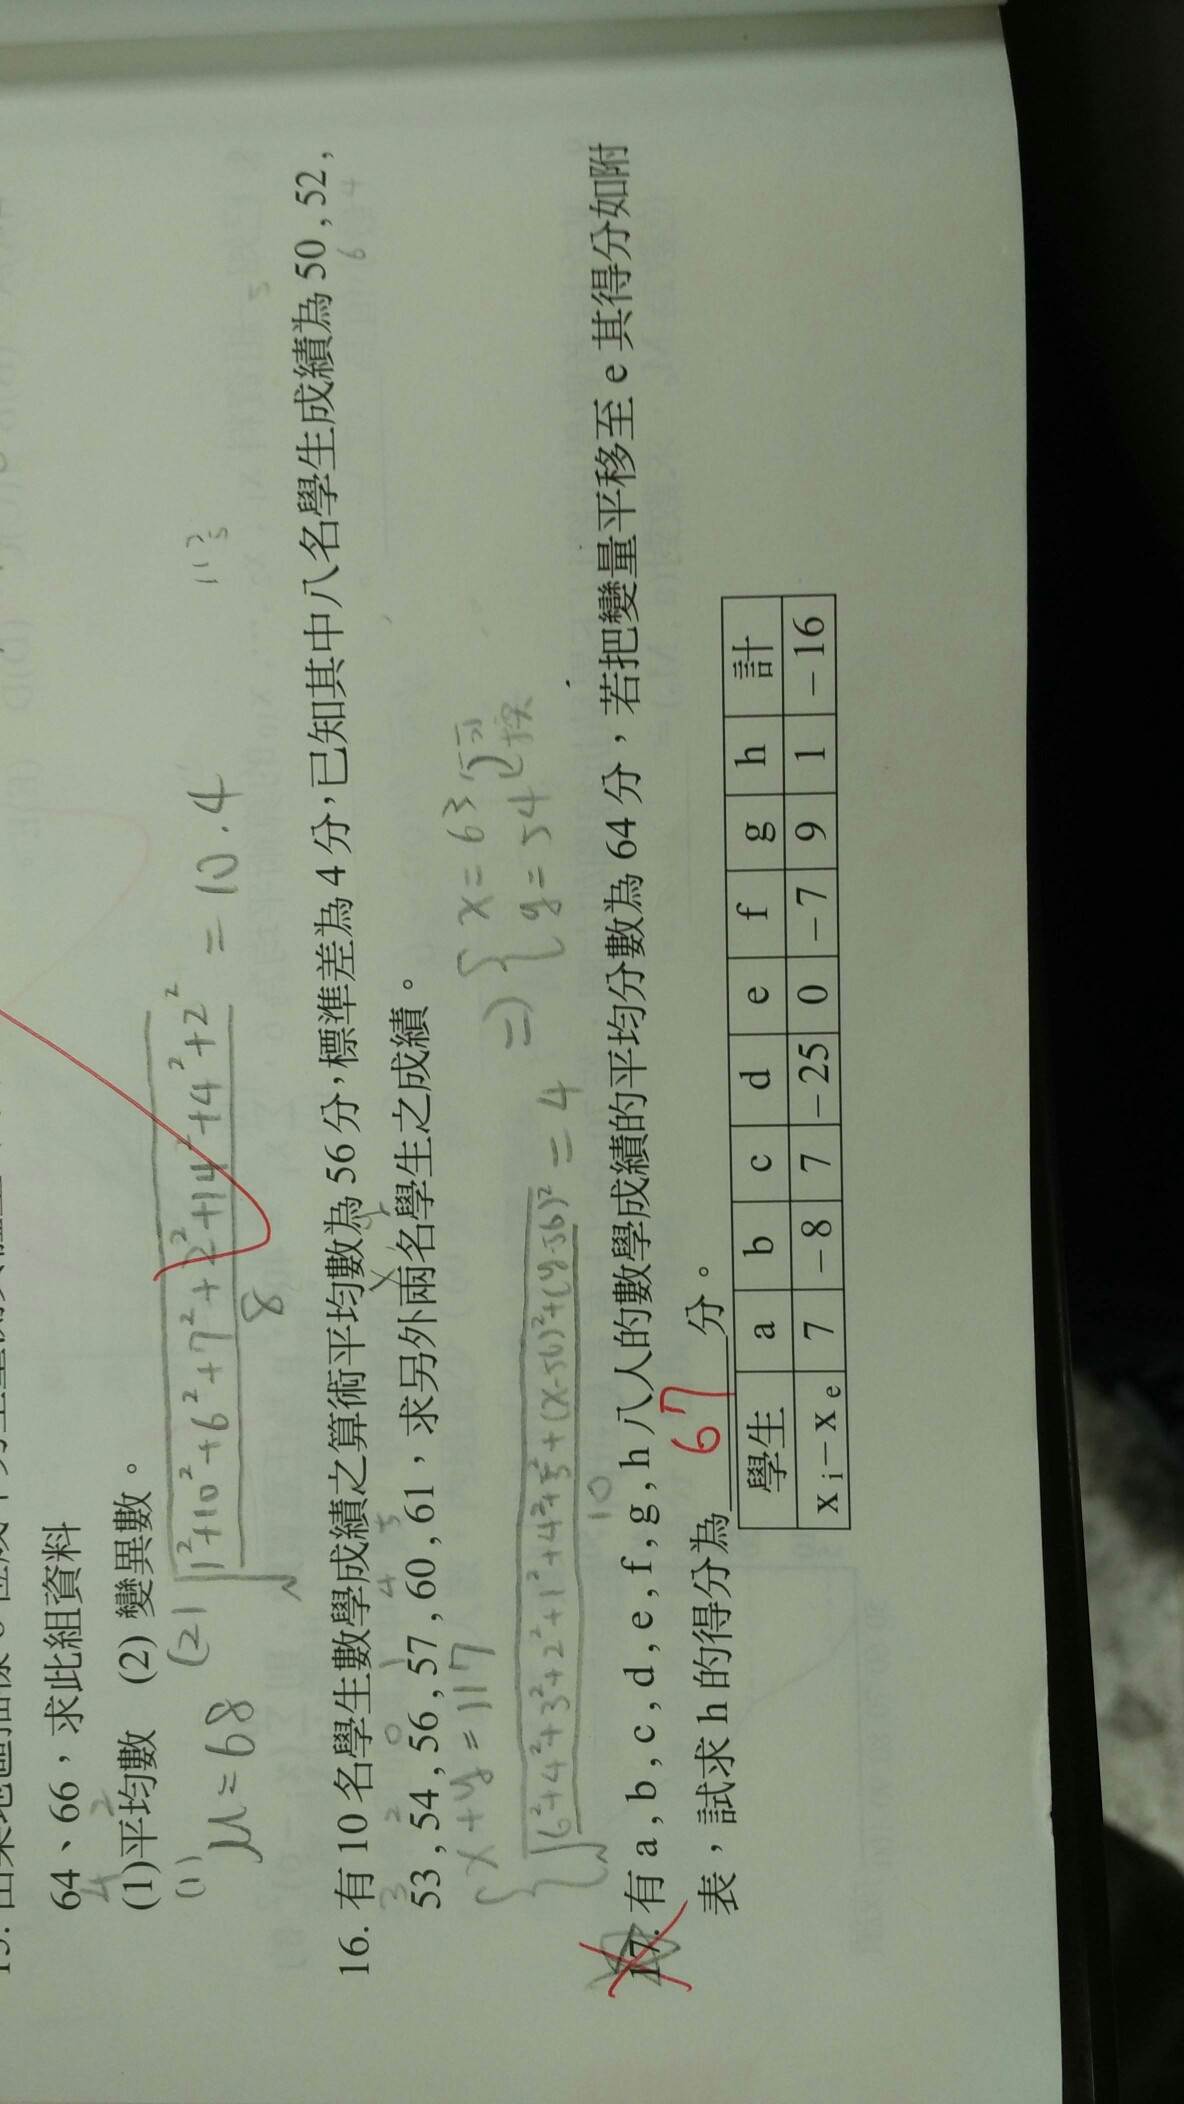 64、66，求此組資料
4 2
(1)平均數 (2) 變異數。
(1) μ=68
(2) √1²+10²+6²+7²+2²+14²+4²+2² / 8 = 10.4
16. 有 10 名學生數學成績之算術平均數為 56 分，標準差為 4 分，已知其中八名學生成績為 50，52，
6 4
53，54，56，57，60，61，求另外兩名學生之成績。
3 2 0 1 4 5 x y
x+y=117
√6²+4²+3²+2²+1²+4²+5²+(x-56)²+(y-56)² / 10 = 4 ⇒ x=63 y=54 可互換
17. 有 a，b，c，d，e，f，g，h 八人的數學成績的平均分數為 64 分，若把變量平移至 e 其得分如附
表，試求 h 的得分為 67 分。
學生 a b c d e f g h 計
xi－xe 7 －8 7 －25 0 －7 9 1 －16